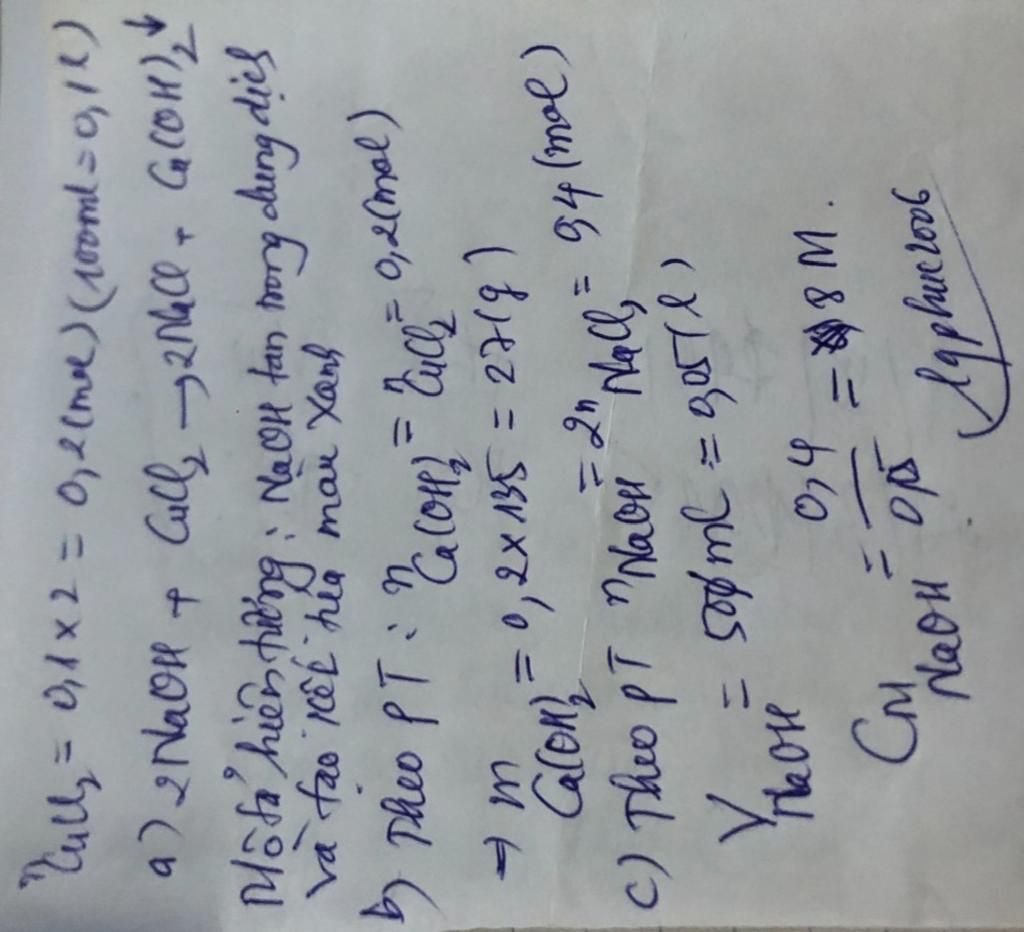 nCuCl2 = 0,1 x 2 = 0,2(mol) (100ml = 0,1 l)
a) 2NaOH + CuCl2 → 2NaCl + Cu(OH)2↓
Mô tả hiện tượng: NaOH tan trong dung dịch
và tạo kết tủa màu xanh
b) Theo PT: nCu(OH)2 = nCuCl2 = 0,2(mol)
→ mCu(OH)2 = 0,2 x 135 = 27(g)
c) Theo PT nNaOH = 2nNaCl2 = 0,4 (mol)
VNaOH = 50 ml = 0,05(l)
CM NaOH = 0,4 / 0,05 = 8 M.
lgphuc2006